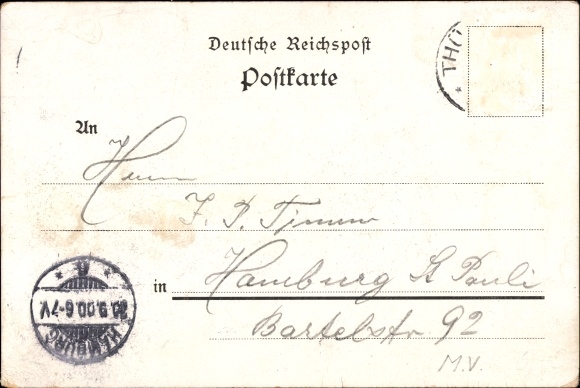 Deutsche Reichspost
Postkarte
THO
An
Herrn
J. P. Timm
in Hamburg St Pauli
Bartelsstr 92
M.V.
9
9.00.6-7V
HAMBURG